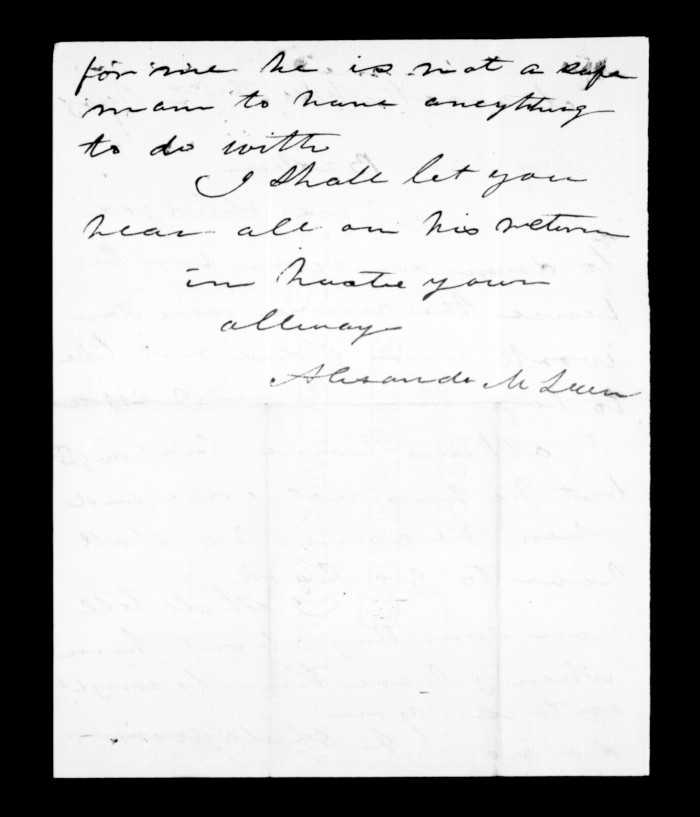 for me he is not a safe
man to have aneything
to do with
I shall let you
hear all on his return
in haste your
allway
Alexande McLean